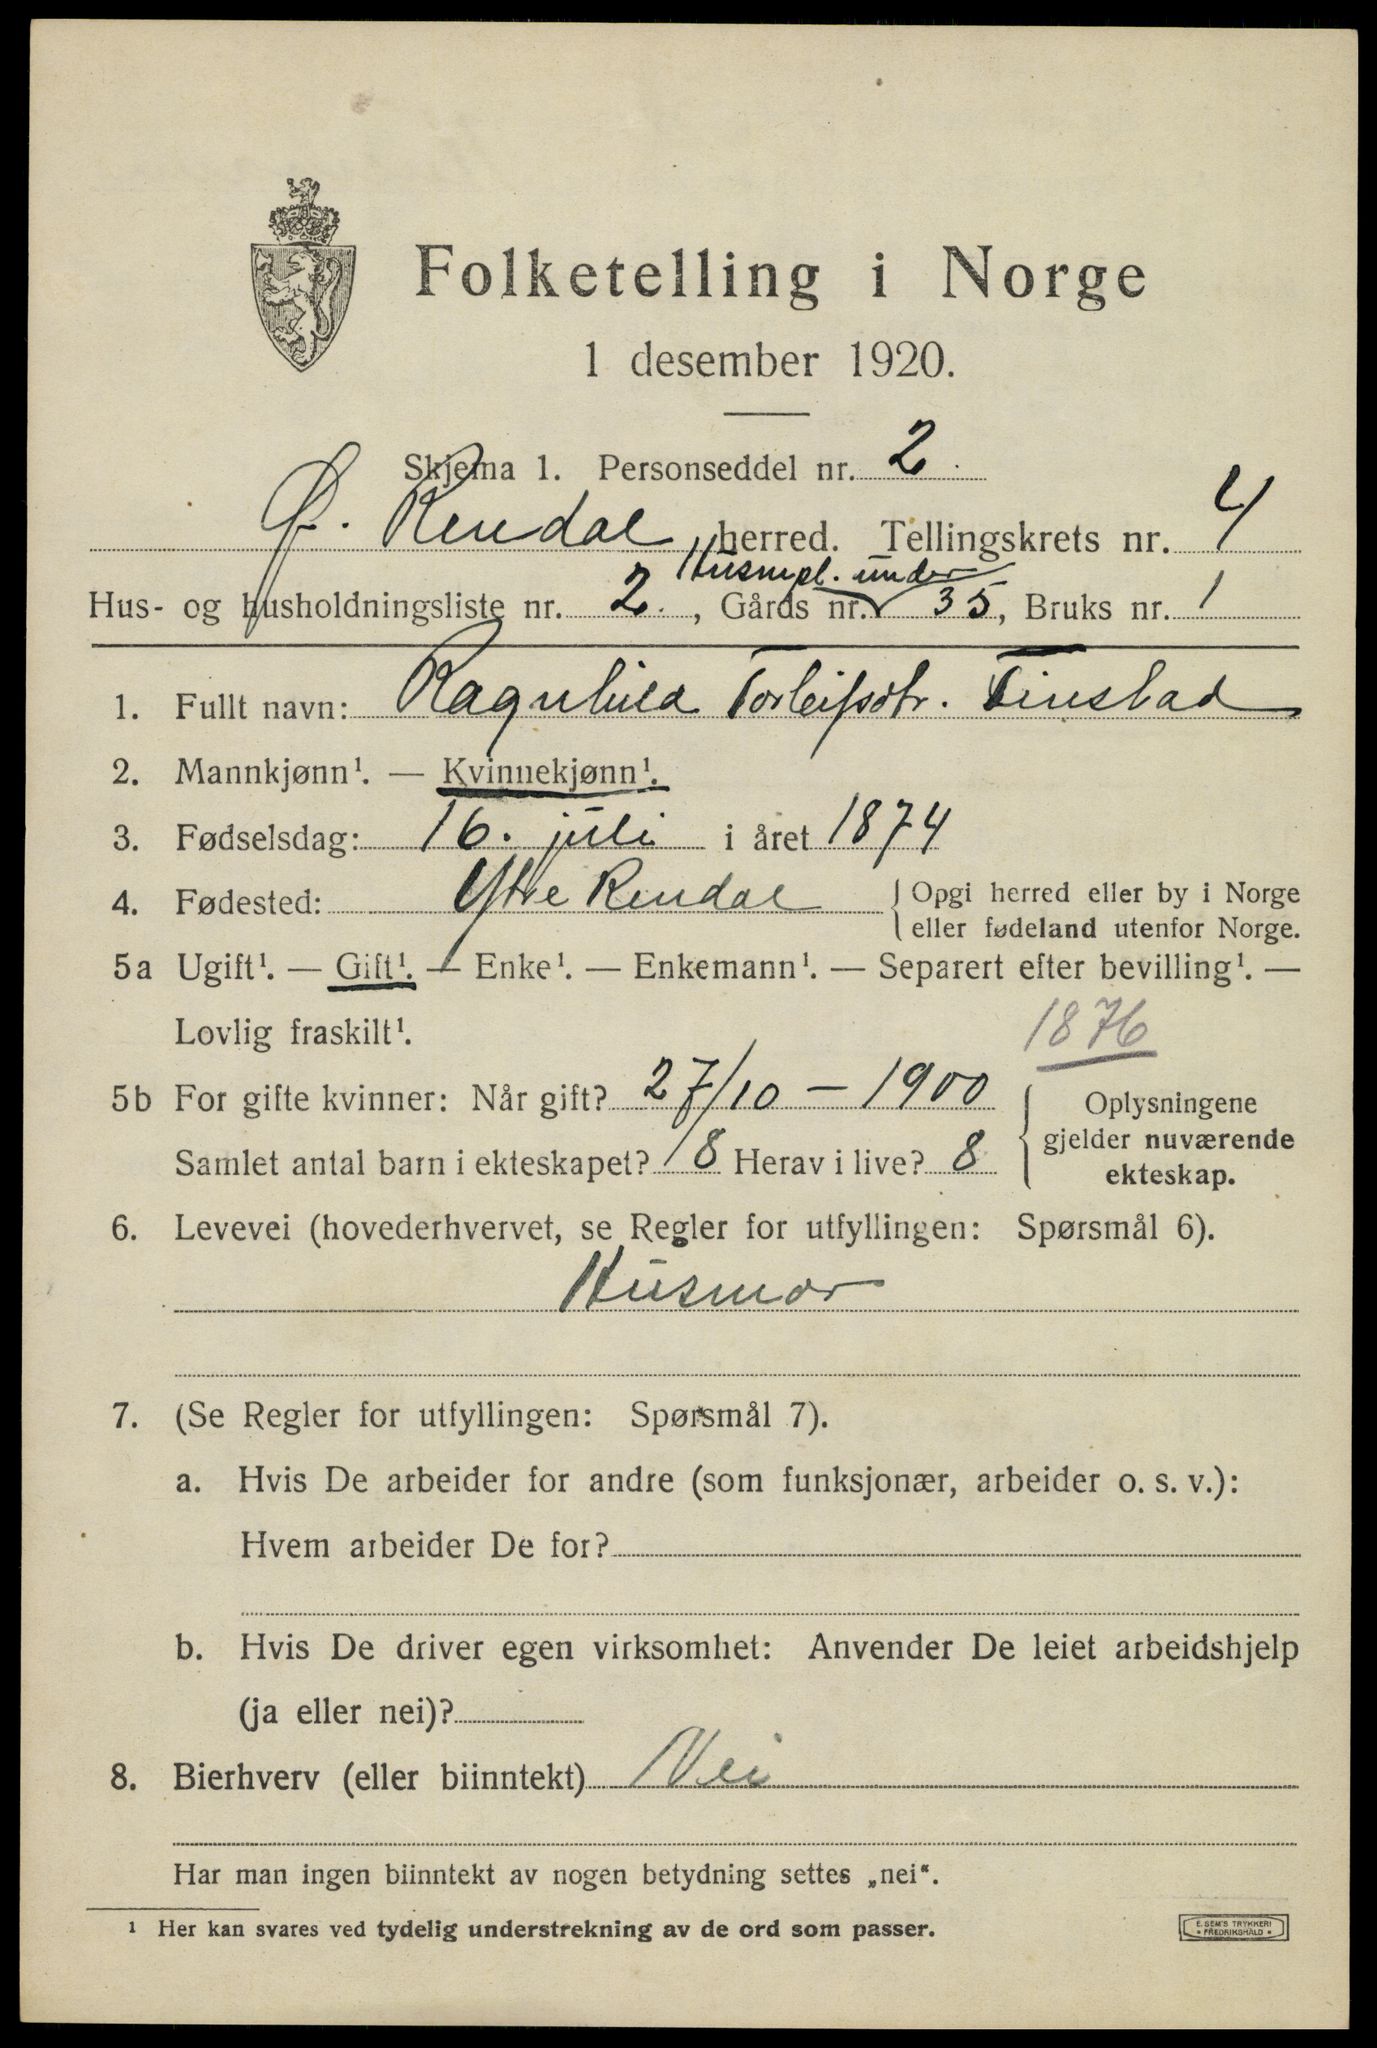 Folketelling i Norge
1 desember 1920.
Skjema 1. Personseddel nr. 2.
Ø. Rendal herred. Tellingskrets nr. 4
Husmpl. under
Hus- og husholdningsliste nr. 2. , Gårds nr. 35, Bruks nr. 1
1. Fullt navn: Ragnhild Torleifsdtr. Finstad
2. Mannkjønn¹. — Kvinnekjønn¹.
3. Fødselsdag: 16. juli i året 1874
4. Fødested: Ytre Rendal { Opgi herred eller by i Norge
eller fødeland utenfor Norge.
5a Ugift¹. — Gift¹. — Enke¹. — Enkemann¹. — Separert efter bevilling¹. —
Lovlig fraskilt¹.
1876
5b For gifte kvinner: Når gift? 27/10 – 1900
Samlet antal barn i ekteskapet? 8 Herav i live? 8
Oplysningene
gjelder nuværende
ekteskap.
6. Levevei (hovederhvervet, se Regler for utfyllingen: Spørsmål 6).
Husmor
7. (Se Regler for utfyllingen: Spørsmål 7).
a. Hvis De arbeider for andre (som funksjonær, arbeider o. s. v.):
Hvem arbeider De for?
b. Hvis De driver egen virksomhet: Anvender De leiet arbeidshjelp
(ja eller nei)?
8. Bierhverv (eller biinntekt) Nei
Har man ingen biinntekt av nogen betydning settes „nei“.
¹ Her kan svares ved tydelig understrekning av de ord som passer.
E. SEM'S TRYKKERI
* FREDRIKSHALD *